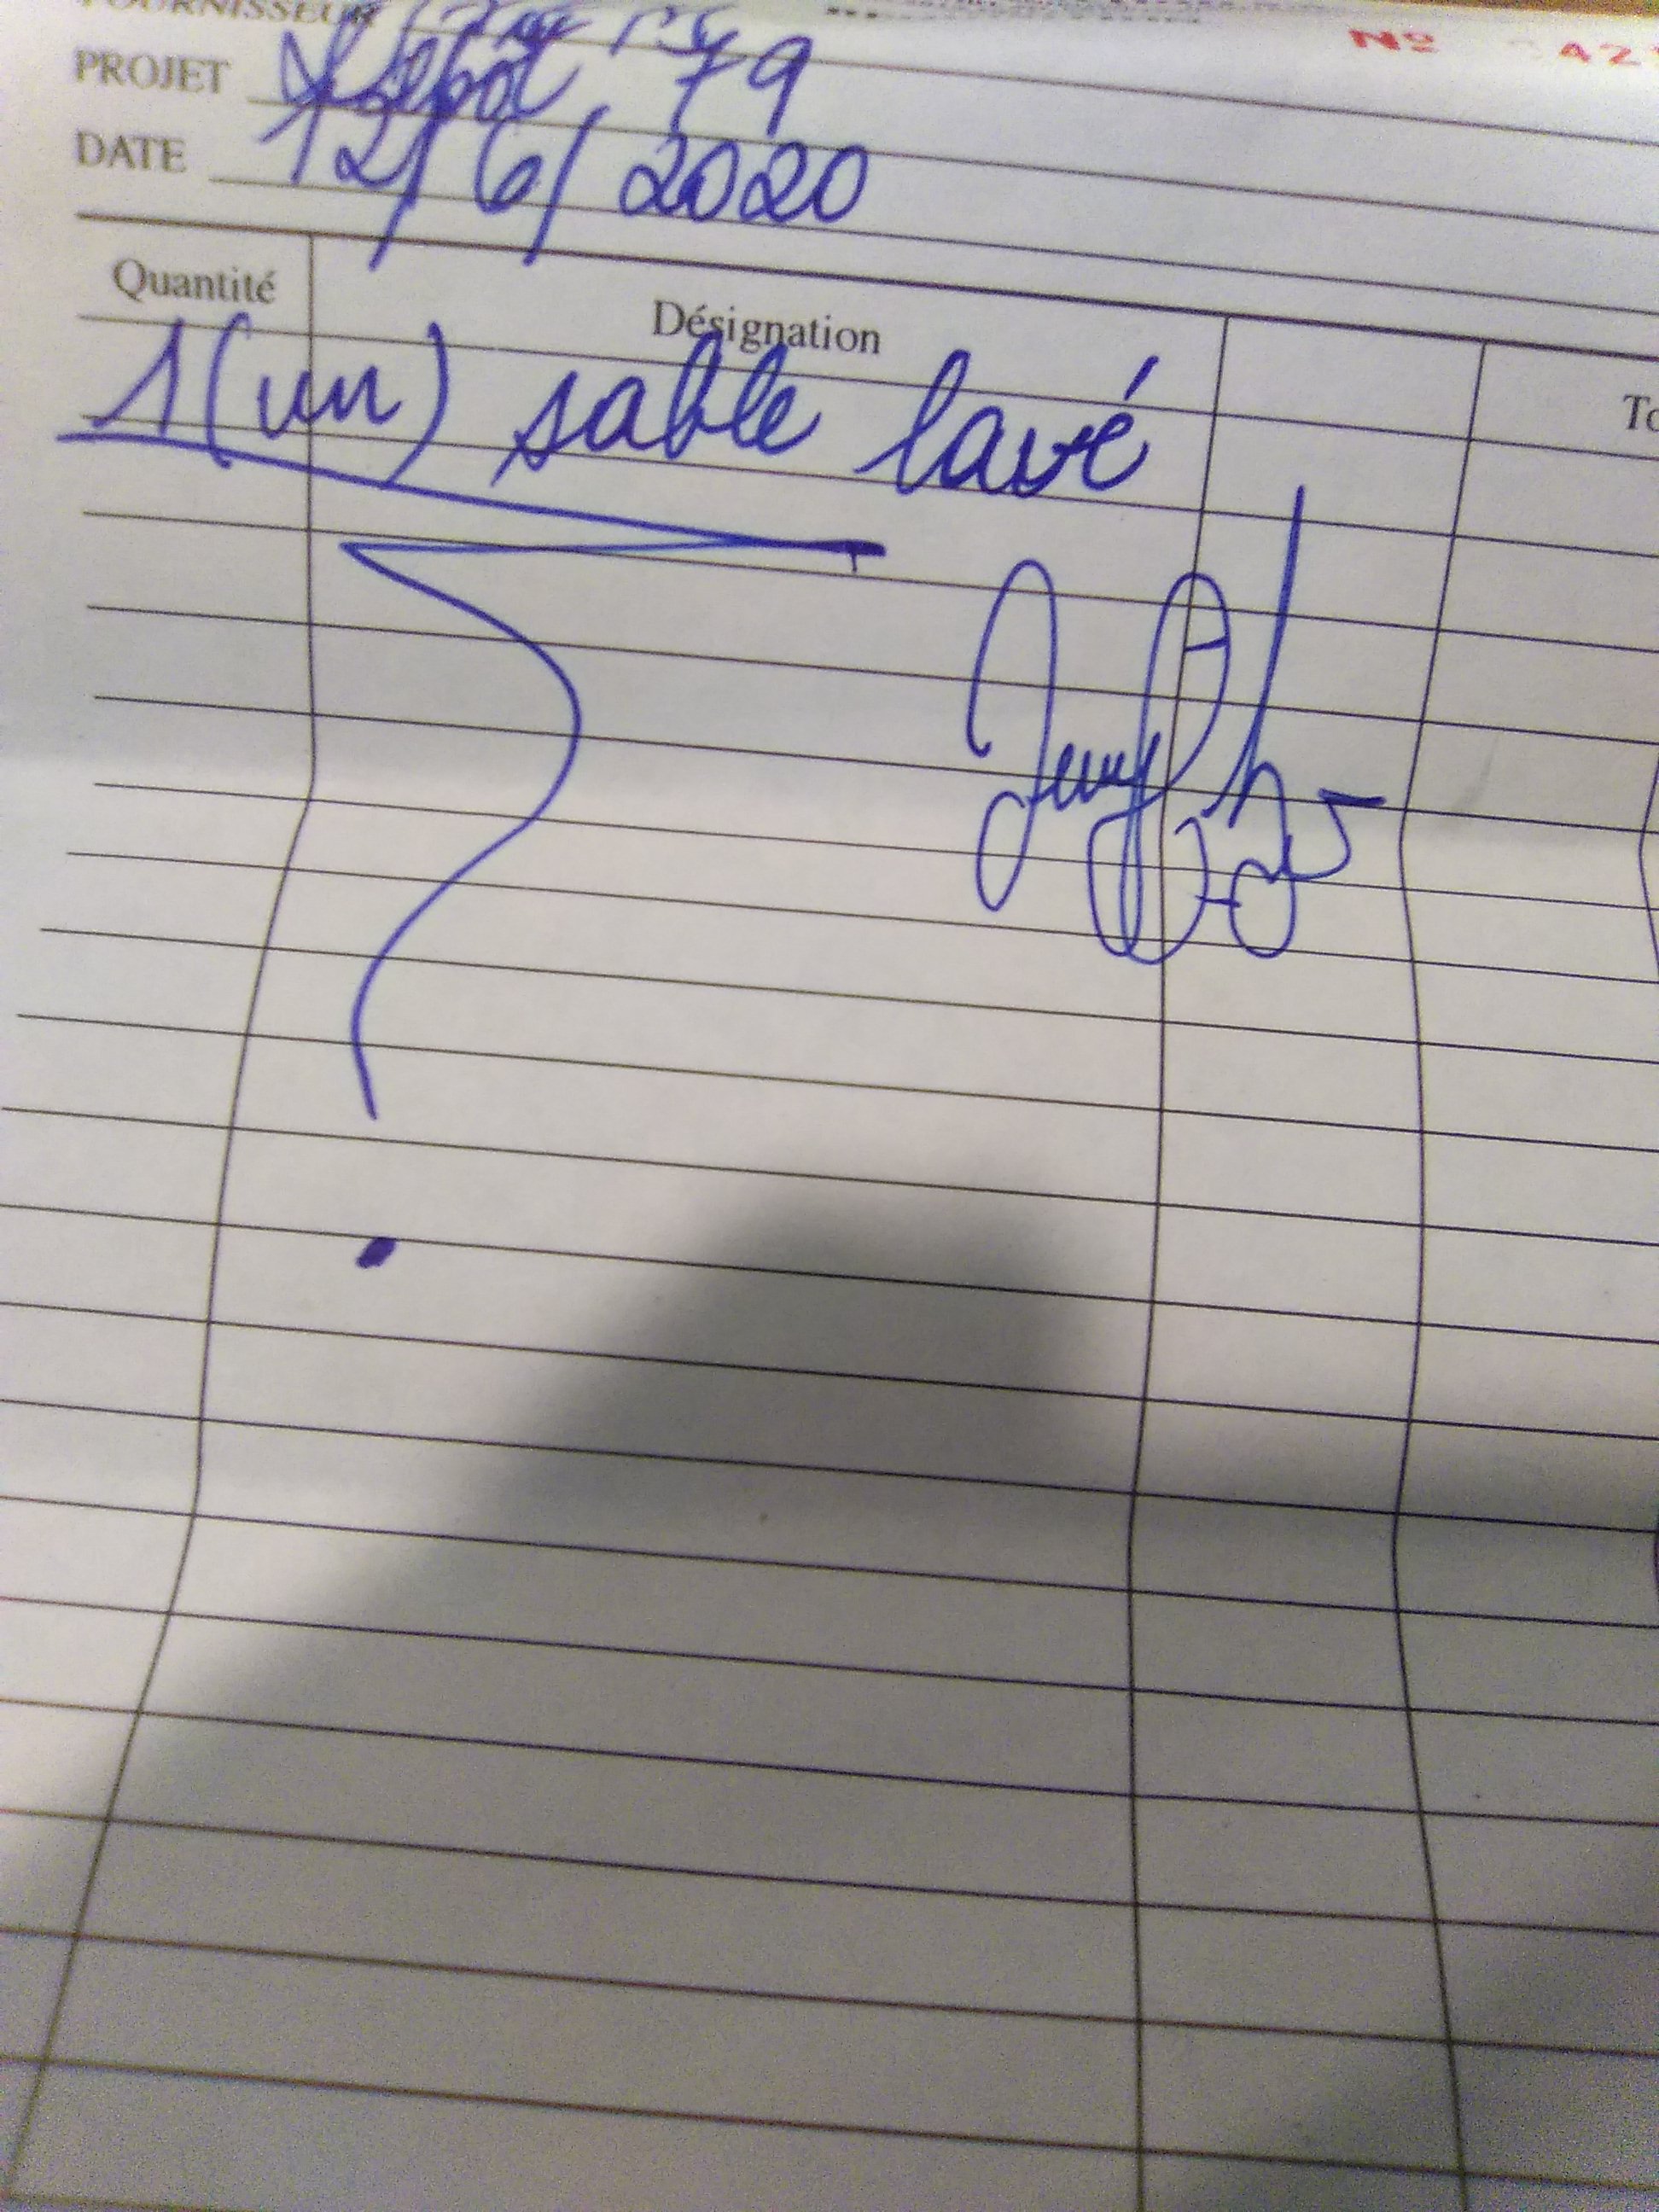 FOURNISSEUR
Nº 42
PROJET Depot 79
DATE 12/6/2020
Quantité Désignation To
1(un) sable lavé